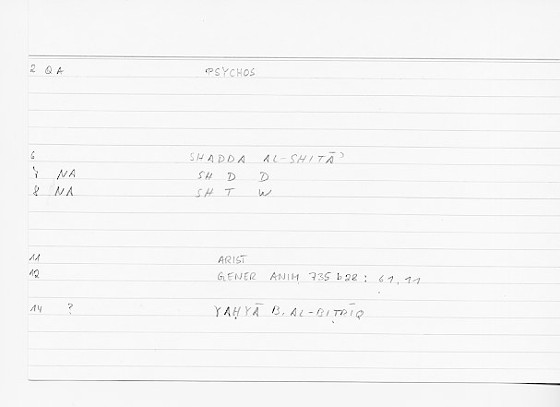 2 QA PSYCHOS
6 SHADDA AL-SHITĀʾ
7 NA SH D D
8 NA SH T W
11 ARIST
12 GENER ANIM 735 b 28 : 61.11
14 ? YAḤYĀ B. AL-BIṬRĪQ